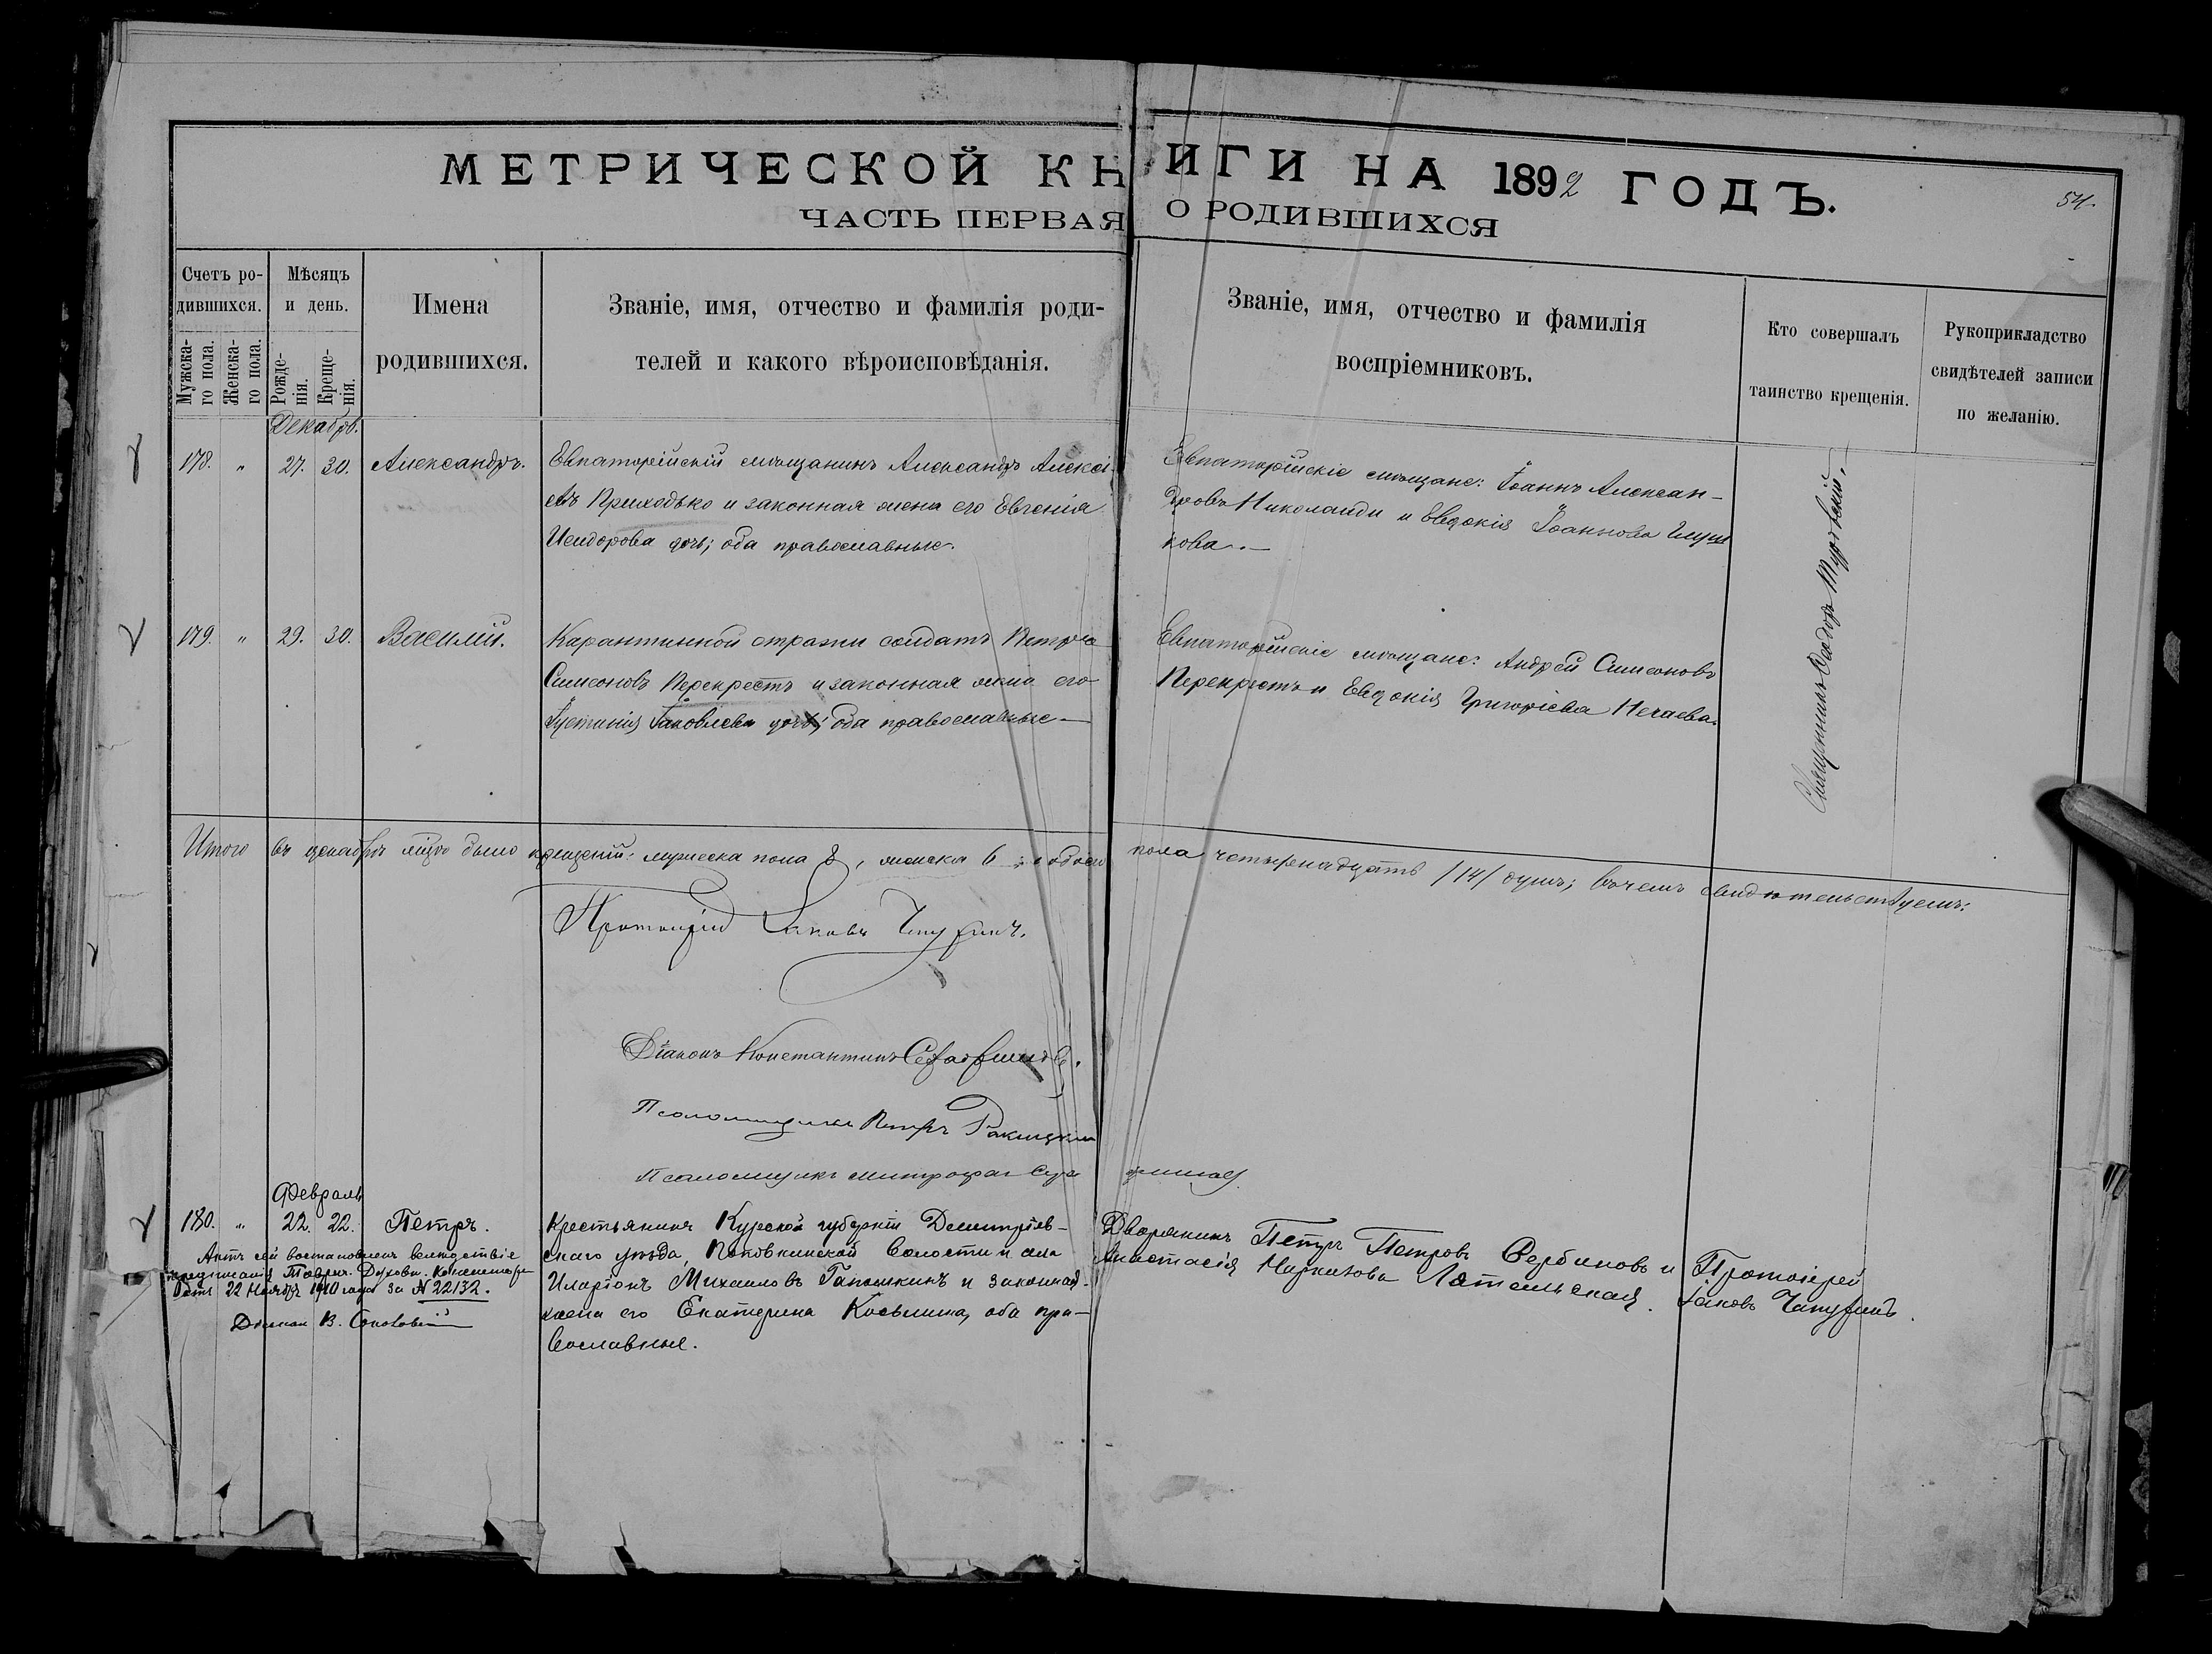 МЕТРИЧЕСКОЙ КНИГИ НА 1892 ГОДЪ.
54.
ЧАСТЬ ПЕРВАЯ О РОДИВШИХСЯ
Счетъ ро-
дившихся.
Мужска-
го пола.
Женска-
го пола.
Мѣсяцъ
и день.
Рожде-
нія.
Креще-
нія.
Имена
родившихся.
Званіе, имя, отчество и фамилія роди-
телей и какого вѣроисповѣданія.
Званіе, имя, отчество и фамилія
воспріемниковъ.
Кто совершалъ
таинство крещенія.
Рукоприкладство
свидѣтелей записи
по желанію.
Декабрь.
178. " 27. 30. Александръ.
Евпаторійскій мѣщанинъ Александръ Алексі-
евъ Приходько и законная жена его Евгенія
Исидорова дочь; оба православные.
Евпаторійскіе мѣщане: Іоаннъ Алексан-
дровъ Николаиди и Евдокія Іоаннова
кова.
Священникъ
179. " 29. 30. Василій.
Карантинной стражи солдатъ Петръ
Симеоновъ Перекрестъ и законная жена его
Іустинія Іаковлева дочь; оба православные
Евпаторійскіе мѣщане: Андрей Симеоновъ
Перекрестъ и Евдокія Григоріева Нечаева.
Итого въ декабрѣ м-цѣ было крещеній: мужеска пола 8, женска 6, обоего пола четырнадцать /14/ душъ; въ чемъ свидѣтельствуемъ:
Протоіерей Іаковъ Чепуринъ.
Діаконъ Константинъ
Псаломщикъ Петръ Ракицкій
Псаломщикъ Митрофан
Февраль
180. " 22. 22. Петръ.
Актъ сей возстановленъ вслѣдствіе
предписанія Таврич. Духовн. Консисторіи
отъ 22 Ноября 1910 года за № 22132.
Діакон В.
Крестьянинъ Курской губерніи Дмитріев-
скаго уѣзда, Поповкинской волости и села
Иларіонъ Михаиловъ Гапошкинъ и законная
жена его Екатерина Косьмина, оба пра-
вославные.
Дворянинъ Петръ Петровъ Сербиновъ и
Анастасія Наркизова
Протоіерей
Іаковъ Чепуринъ.